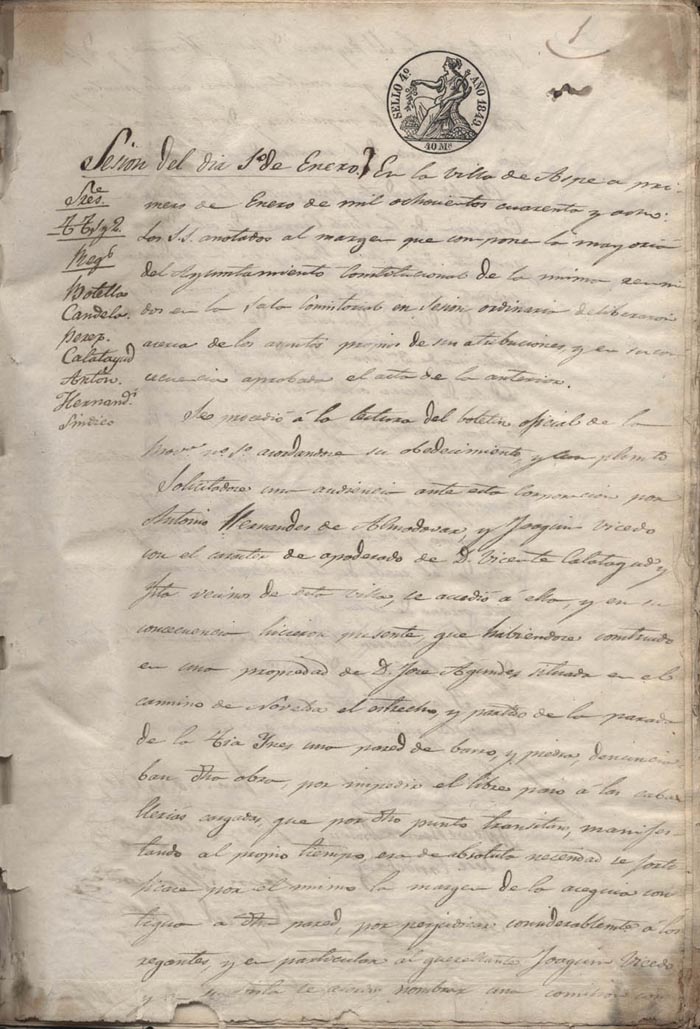 1
SELLO 4º AÑO 1849.
40 Ms
Sesion del dia 1º de Enero
Sres
Regs
Botella
Candela.
Perez.
Calatayud
Antón.
Hernands
Sindico
En la villa de Aspe a pri-
mero de Enero de mil ochocientos cuarenta y
los S.S. anotados al margen que componen la mayoria
del Ayuntamiento Constitucional de la misma reuni-
dos en la Sala Consistorial en Sesion ordinaria deliberaron
acerca de los asuntos propios de sus atribuciones, y en su con-
secuencia aprobada el acta de la anterior.
Se procedió á la lectura del boletin oficial de la
Provª nº 1º acordandose su obedecimiento y cumplimto
Solicitadose una audiencia ante esta Corporacion por
Antonio Hernandes de Almodovar, y Joaquin Vicedo
con el caracter de apoderado de D. Vicente Calatayud y
vecinos de esta villa, se accedió á ella, y en su
concecuencia hicieron presente, que habiendose construido
en una propiedad de D. Jose Agundes situada en el
camino de Novelda el estrecho, y partido de la parada
de la Tia Ines una pared de barro, y piedra, denuncia-
ban dha obra, por impedir el libre paso á las caba-
llerias cargadas, que por dho punto transitan, manifes-
tando al propio tiempo, era de absoluta necesidad se forti-
ficase por el mismo la margen de la acequia con-
tigua a dha pared, por perjudicar considerablemte á los
regantes, y en particular al querellante Joaquin Vicedo
y en su vista se acordó nombrar una comision com-